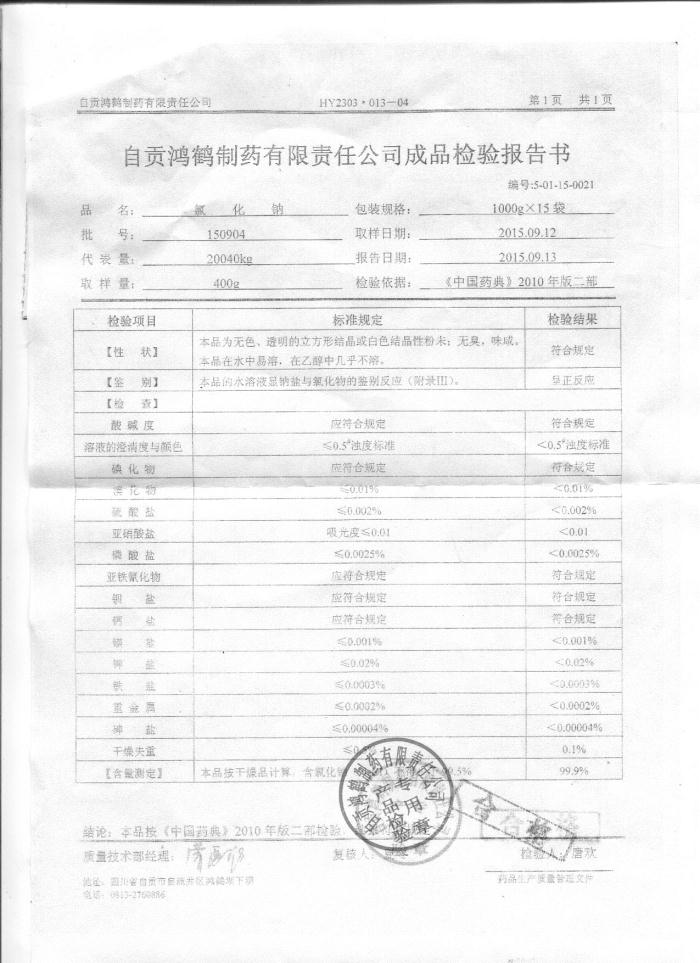 自贡鸿鹤制药有限责任公司 HY2303·013—04 第1页 共1页
自贡鸿鹤制药有限责任公司成品检验报告书
编号:5-01-15-0021
品 名: 氯 化 钠 包装规格: 1000g×15袋
批 号: 150904 取样日期: 2015.09.12
代表量: 20040kg 报告日期: 2015.09.13
取样量: 400g 检验依据: 《中国药典》2010年版二部
检验项目 标准规定 检验结果
【性 状】 本品为无色、透明的立方形结晶或白色结晶性粉末；无臭，味咸。 符合规定
本品在水中易溶，在乙醇中几乎不溶。
【鉴 别】 本品的水溶液显钠盐与氯化物的鉴别反应（附录III）。 呈正反应
【检 查】
酸碱度 应符合规定 符合规定
溶液的澄清度与颜色 ≤0.5#浊度标准 <0.5#浊度标准
碘化物 应符合规定 符合规定
溴化物 ≤0.01% <0.01%
硫酸盐 ≤0.002% <0.002%
亚硝酸盐 吸光度≤0.01 <0.01
磷酸盐 ≤0.0025% <0.0025%
亚铁氰化物 应符合规定 符合规定
钡 盐 应符合规定 符合规定
钙 盐 应符合规定 符合规定
镁 盐 ≤0.001% <0.001%
钾 盐 ≤0.02% <0.02%
铁 盐 ≤0.0003% <0.0003%
重金属 ≤0.0002% <0.0002%
砷 盐 ≤0.00004% <0.00004%
干燥失重 ≤0. 0.1%
【含量测定】 本品按干燥品计算，含氯化 99.5% 99.9%
自贡鸿鹤制药有限责任公司
产品检验专用章
合格
结论：本品按《中国药典》2010年版二部检验，
质量技术部经理： 复核人： 检验人：唐欢
地址：四川省自贡市自流井区鸿鹤坝下坝 药品生产质量管理文件
电话：0813-2760886